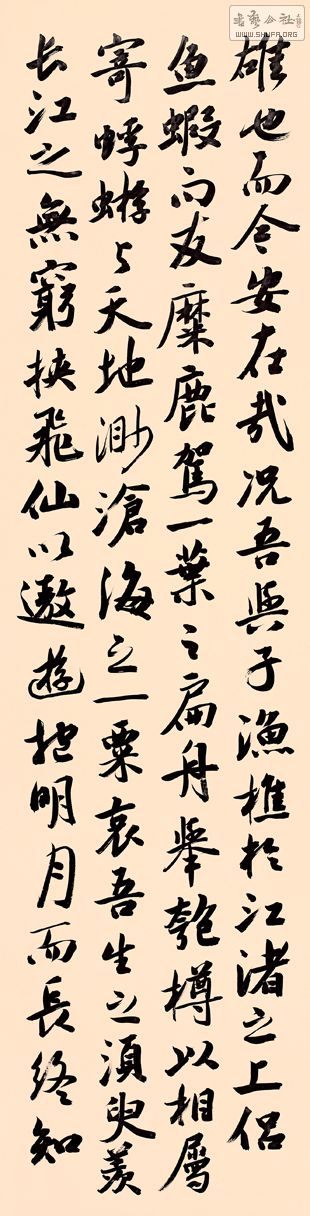 書藝公社
WWW.SHUFA.ORG
雄也而今安在哉况吾與子漁樵於江渚之上侣
魚蝦而友麋鹿駕一葉之扁舟舉匏樽以相屬
寄蜉蝣与天地渺滄海之一粟哀吾生之須臾羨
长江之無窮挾飛仙以遨遊抱明月而長終知